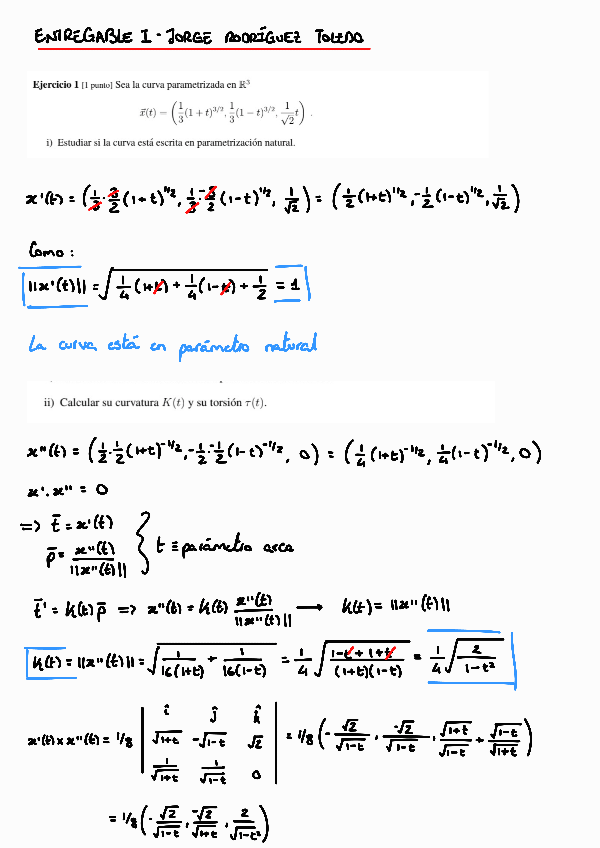 ENTREGABLE I - JORGE RODRÍGUEZ TOLEDO
Ejercicio 1 [1 punto] Sea la curva parametrizada en ℝ³
x⃗(t) = (1/3(1 + t)^{3/2}, 1/3(1 − t)^{3/2}, 1/√2 t) .
i) Estudiar si la curva está escrita en parametrización natural.
x'(t) = (1/3·3/2(1+t)^{1/2}, 1/3·-3/2(1-t)^{1/2}, 1/√2) = (1/2(1+t)^{1/2}, -1/2(1-t)^{1/2}, 1/√2)
Como :
||x'(t)|| = √(1/4(1+t) + 1/4(1-t) + 1/2) = 1
La curva está en parámetro natural
ii) Calcular su curvatura K(t) y su torsión τ(t).
x''(t) = (1/2·1/2(1+t)^{-1/2}, -1/2·-1/2(1-t)^{-1/2}, 0) = (1/4(1+t)^{-1/2}, 1/4(1-t)^{-1/2}, 0)
x'·x'' = 0
=> t̄ = x'(t)
p̄ = x''(t)/||x''(t)|| } t ≡ parámetro arco
t̄' = K(t) p̄ => x''(t) = K(t) x''(t)/||x''(t)|| ⟶ K(t) = ||x''(t)||
K(t) = ||x''(t)|| = √(1/16(1+t) + 1/16(1-t)) = 1/4 √(1-t+1+t/(1+t)(1-t)) = 1/4 √(2/1-t²)
x'(t) x x''(t) = 1/8 | î ĵ k̂ ; √1+t -√1-t √2 ; 1/√1+t 1/√1-t 0 | = 1/8 (-√2/√1-t, -√2/√1-t, √1+t/√1-t + √1-t/√1+t)
= 1/8 (-√2/√1-t, -√2/√1+t, 2/√1-t²)